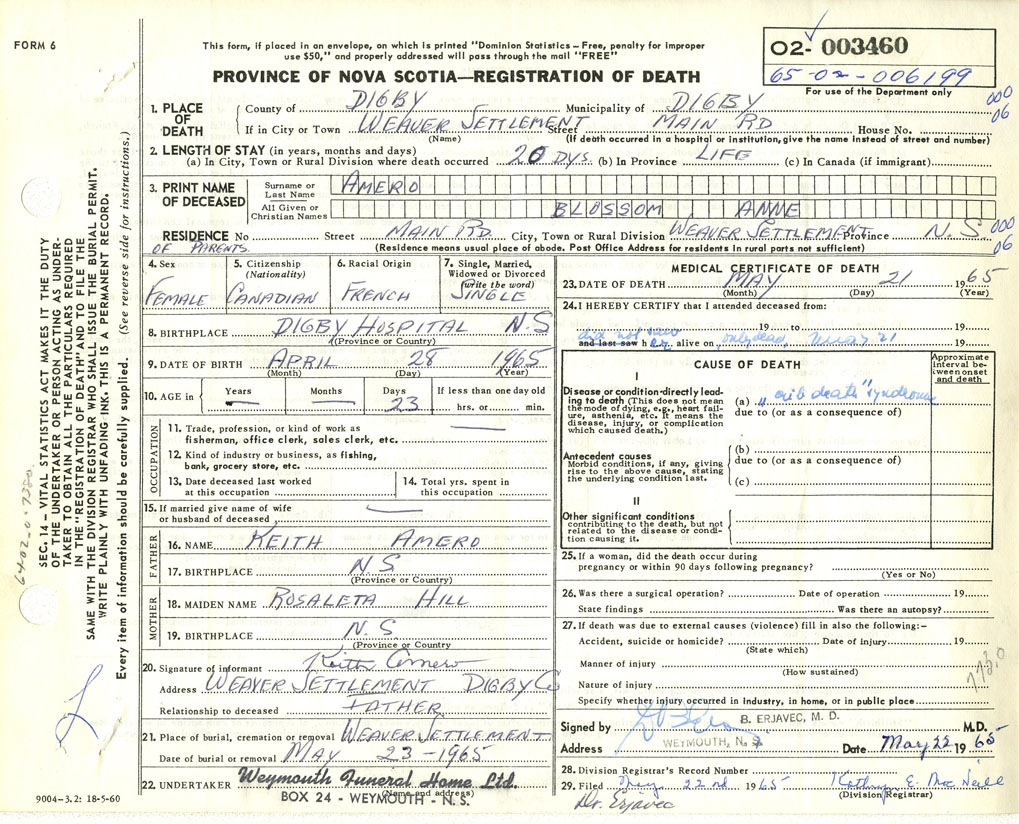 FORM 6
This form, if placed in an envelope, on which is printed "Dominion Statistics – Free, penalty for improper
use $50," and properly addressed will pass through the mail "FREE"
PROVINCE OF NOVA SCOTIA—REGISTRATION OF DEATH
02- 003460
65-02-006199
For use of the Department only
000
06
1. PLACE OF DEATH
County of DIGBY Municipality of DIGBY
If in City or Town WEAVER SETTLEMENT Street MAIN RD House No.
(Name) (If death occurred in a hospital or institution, give the name instead of street and number)
2. LENGTH OF STAY (in years, months and days)
(a) In City, Town or Rural Division where death occurred 20 DYS. (b) In Province LIFE (c) In Canada (if immigrant)
3. PRINT NAME OF DECEASED
Surname or Last Name AMERO
All Given or Christian Names BLOSSOM ANNE
RESIDENCE No Street MAIN RD. City, Town or Rural Division WEAVER SETTLEMENT Province N.S
OF PARENTS. (Residence means usual place of abode. Post Office Address for residents in rural parts not sufficient)
000
06
4. Sex
FEMALE
5. Citizenship (Nationality)
CANADIAN
6. Racial Origin
FRENCH
7. Single, Married, Widowed or Divorced (write the word)
SINGLE
8. BIRTHPLACE DIGBY HOSPITAL N.S
(Province or Country)
9. DATE OF BIRTH APRIL 28 1965
(Month) (Day) (Year)
10. AGE in Years — Months — Days 23 If less than one day old hrs. or min.
OCCUPATION
11. Trade, profession, or kind of work as
fisherman, office clerk, sales clerk, etc. —
12. Kind of industry or business, as fishing,
bank, grocery store, etc.
13. Date deceased last worked
at this occupation
14. Total yrs. spent in
this occupation
15. If married give name of wife
or husband of deceased —
FATHER
16. NAME KEITH AMERO
17. BIRTHPLACE N S
(Province or Country)
MOTHER
18. MAIDEN NAME ROSALETA HILL
19. BIRTHPLACE N.S.
(Province or Country)
20. Signature of informant Keith Amero
Address WEAVER SETTLEMENT DIGBY Co
Relationship to deceased FATHER
21. Place of burial, cremation or removal WEAVER SETTLEMENT
Date of burial or removal MAY 23 - 1965
22. UNDERTAKER Weymouth Funeral Home Ltd.
(Name and address)
BOX 24 - WEYMOUTH - N. S.
9004-3.2: 18-5-60
MEDICAL CERTIFICATE OF DEATH
23. DATE OF DEATH MAY 21 1965
(Month) (Day) (Year)
24. I HEREBY CERTIFY that I attended deceased from:
19 to 19
did not saw
and last saw her alive on only dead, May 21 19
CAUSE OF DEATH
Approximate interval between onset and death
I
Disease or condition directly leading to death (This does not mean the mode of dying, e.g., heart failure, asthenia, etc. It means the disease, injury, or complication which caused death.)
(a) "crib death" syndrome
due to (or as a consequence of)
Antecedent causes
Morbid conditions, if any, giving rise to the above cause, stating the underlying condition last.
(b)
due to (or as a consequence of)
(c)
II
Other significant conditions
contributing to the death, but not related to the disease or condition causing it.
25. If a woman, did the death occur during
pregnancy or within 90 days following pregnancy?
(Yes or No)
26. Was there a surgical operation? Date of operation 19
State findings Was there an autopsy?
27. If death was due to external causes (violence) fill in also the following:–
Accident, suicide or homicide? Date of injury 19
(State which)
Manner of injury
(How sustained)
Nature of injury
Specify whether injury occurred in industry, in home, or in public place
Signed by B. ERJAVEC, M. D. M.D.
Address WEYMOUTH, N. S. Date May 22 1965
28. Division Registrar's Record Number
29. Filed May 22nd 1965 Kathryn E. McNeill
(Division Registrar)
Dr. Erjavec
SEC. 14 – VITAL STATISTICS ACT MAKES IT THE DUTY
OF THE UNDERTAKER OR PERSON ACTING AS UNDER-
TAKER TO OBTAIN ALL THE PARTICULARS REQUIRED
IN THE "REGISTRATION OF DEATH" AND TO FILE THE
SAME WITH THE DIVISION REGISTRAR WHO SHALL ISSUE THE BURIAL PERMIT.
WRITE PLAINLY WITH UNFADING INK. THIS IS A PERMANENT RECORD.
Every item of information should be carefully supplied. (See reverse side for instructions.)